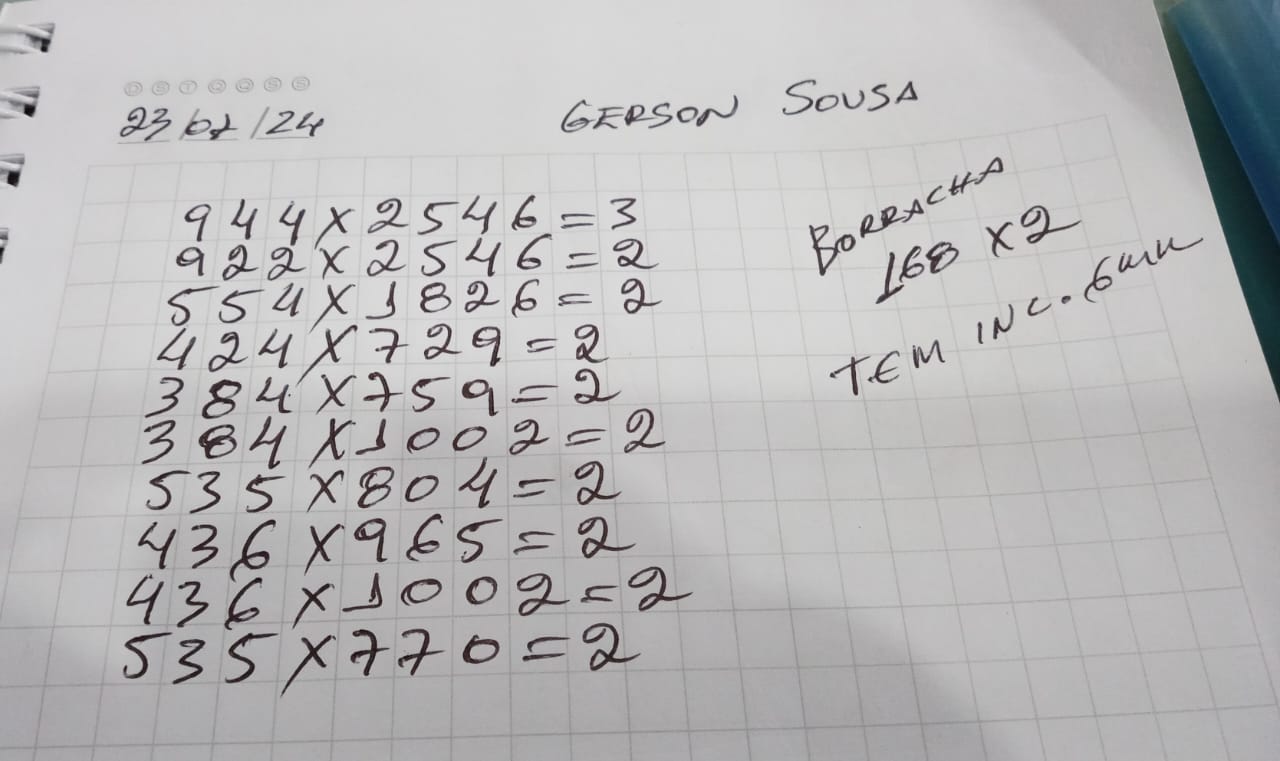 D S T Q Q S S
23/07/24
GERSON SOUSA
944x2546=3
922x2546=2
554x1826=2
424x729=2
384x759=2
384x1002=2
535x804=2
436x965=2
436x1002=2
535x770=2
BORRACHA
168 x2
TEM INC. 6MM